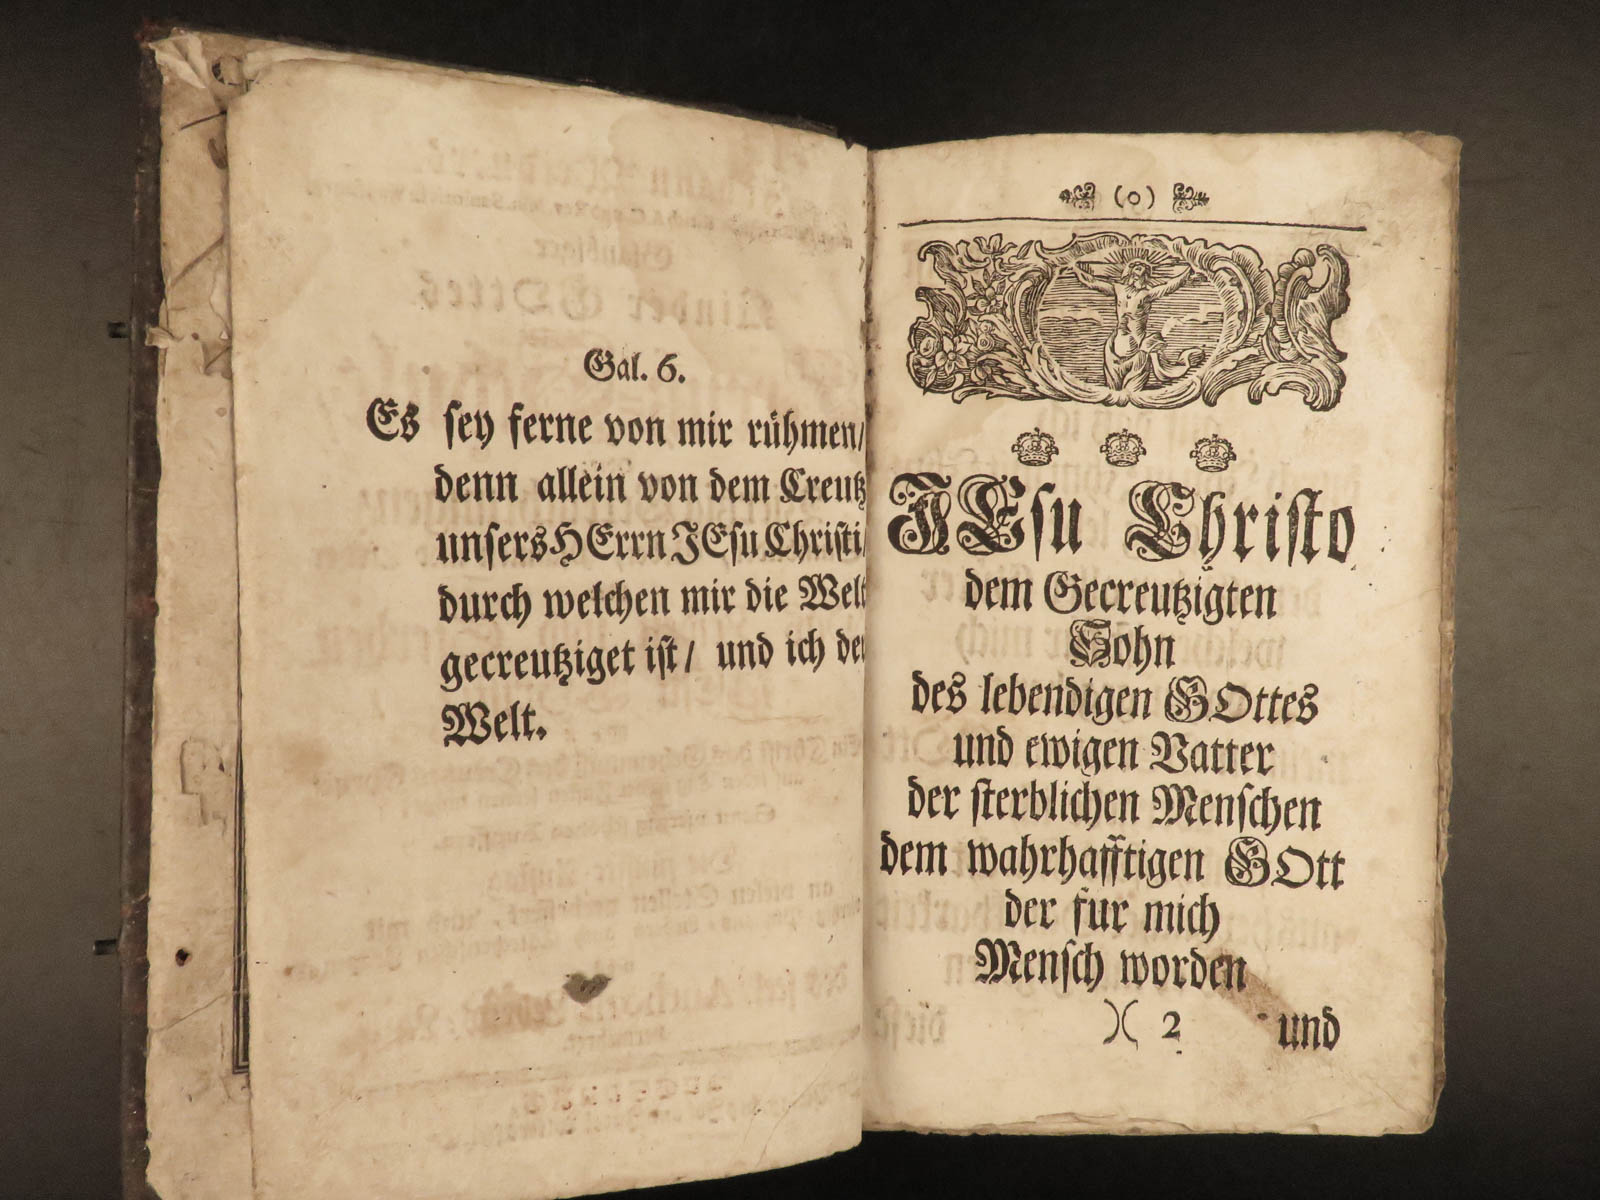 Gal. 6.
Es sey ferne von mir rühmen/
denn allein von dem Creutz
unsers HErrn JEsu Christi/
durch welchen mir die Welt
gecreutziget ist/ und ich der
Welt.
(0)
JEsu Christo
dem Gecreutzigten
Sohn
des lebendigen GOttes
und ewigen Vatter
der sterblichen Menschen
dem wahrhafftigen GOtt
der für mich
Mensch worden
)( 2 und